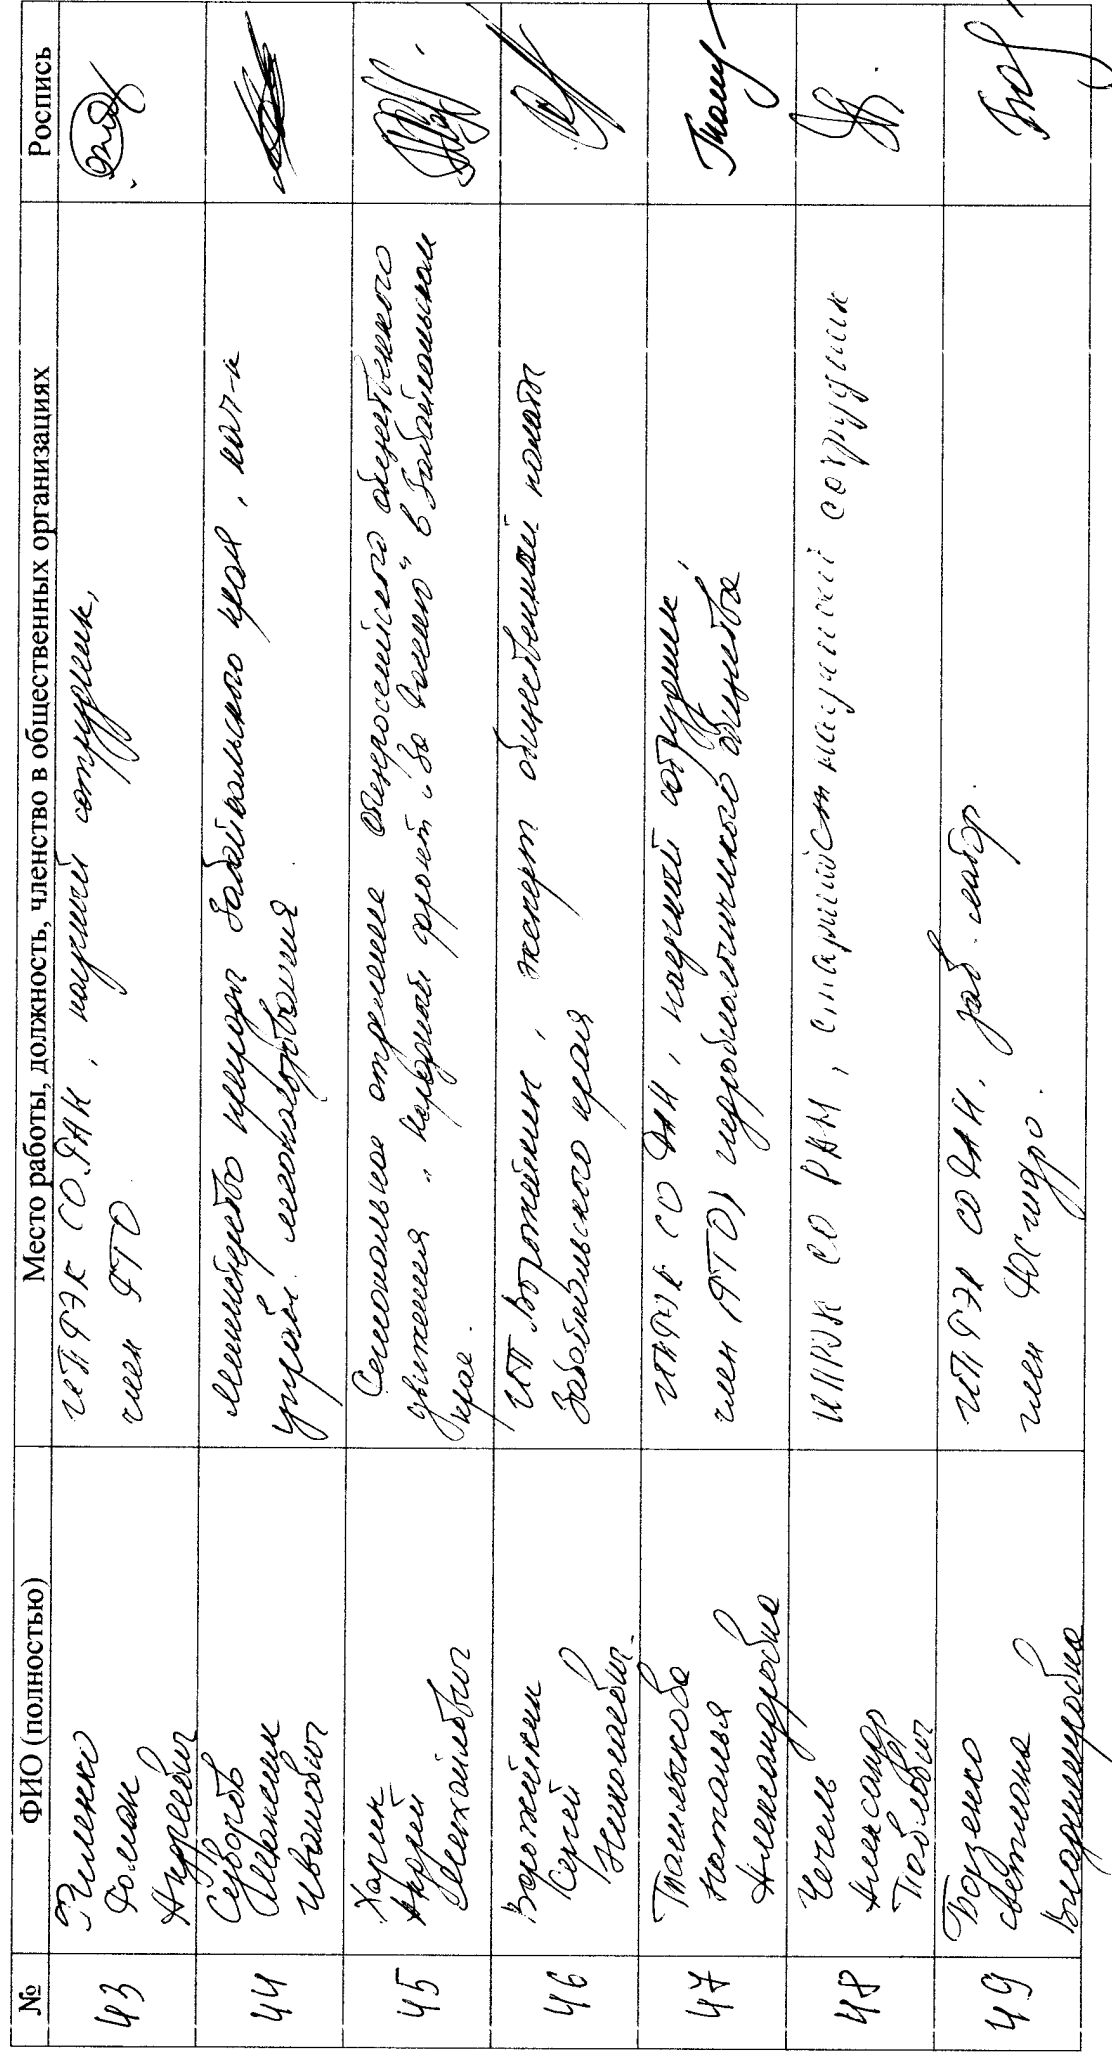 № ФИО (полностью) Место работы, должность, членство в общественных организациях Роспись
43
Роман
Андреевич
ИПРЭК СО РАН, научный сотрудник,
член РГО
44
Суворов
Максим
Иванович
Министерство природы Забайкальского края, нач-к
управ. лесопользования
45
Харин
Андрей
Михайлович
Региональное отделение Общероссийского общественного
движения "Народный фронт "За Россию" в Забайкальском
крае.
46
Ворожейкин
Сергей
Николаевич
ИП Ворожейкин, эксперт общественной палаты
Забайкальского края
47
Ташлыкова
Наталья
Александровна
ИПРЭК СО РАН, научный сотрудник,
член РГО, гидробиологического общества
48
Чечель
Александр
Павлович
ИПРЭК СО РАН, старший научный сотрудник
49
Борзенко
Светлана
Владимировна
ИПРЭК СО РАН, зав. лабор.
член